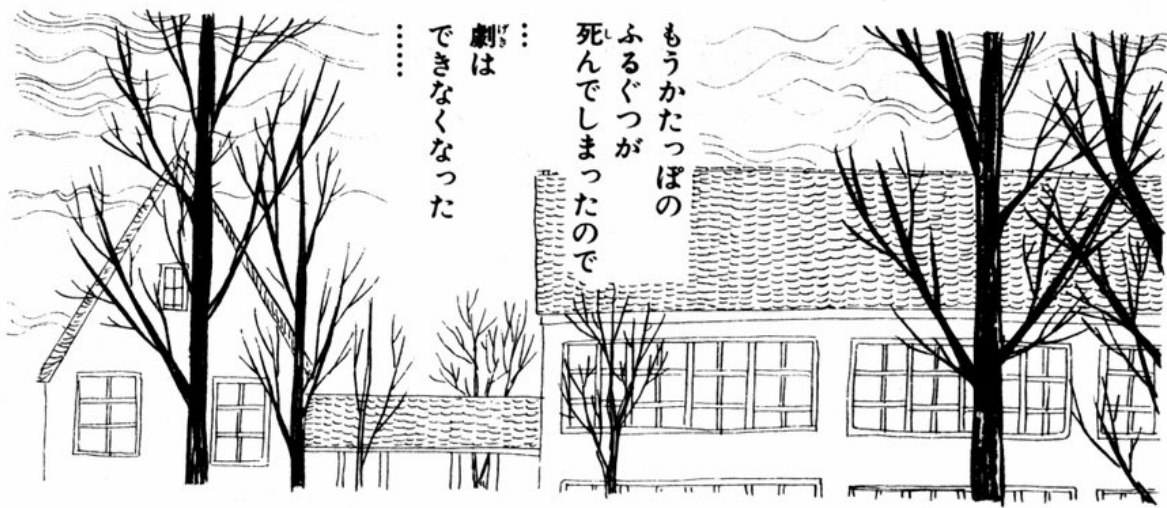 もうかたっぽの
ふるぐつが
死んでしまったので
…
劇は
できなくなった
……